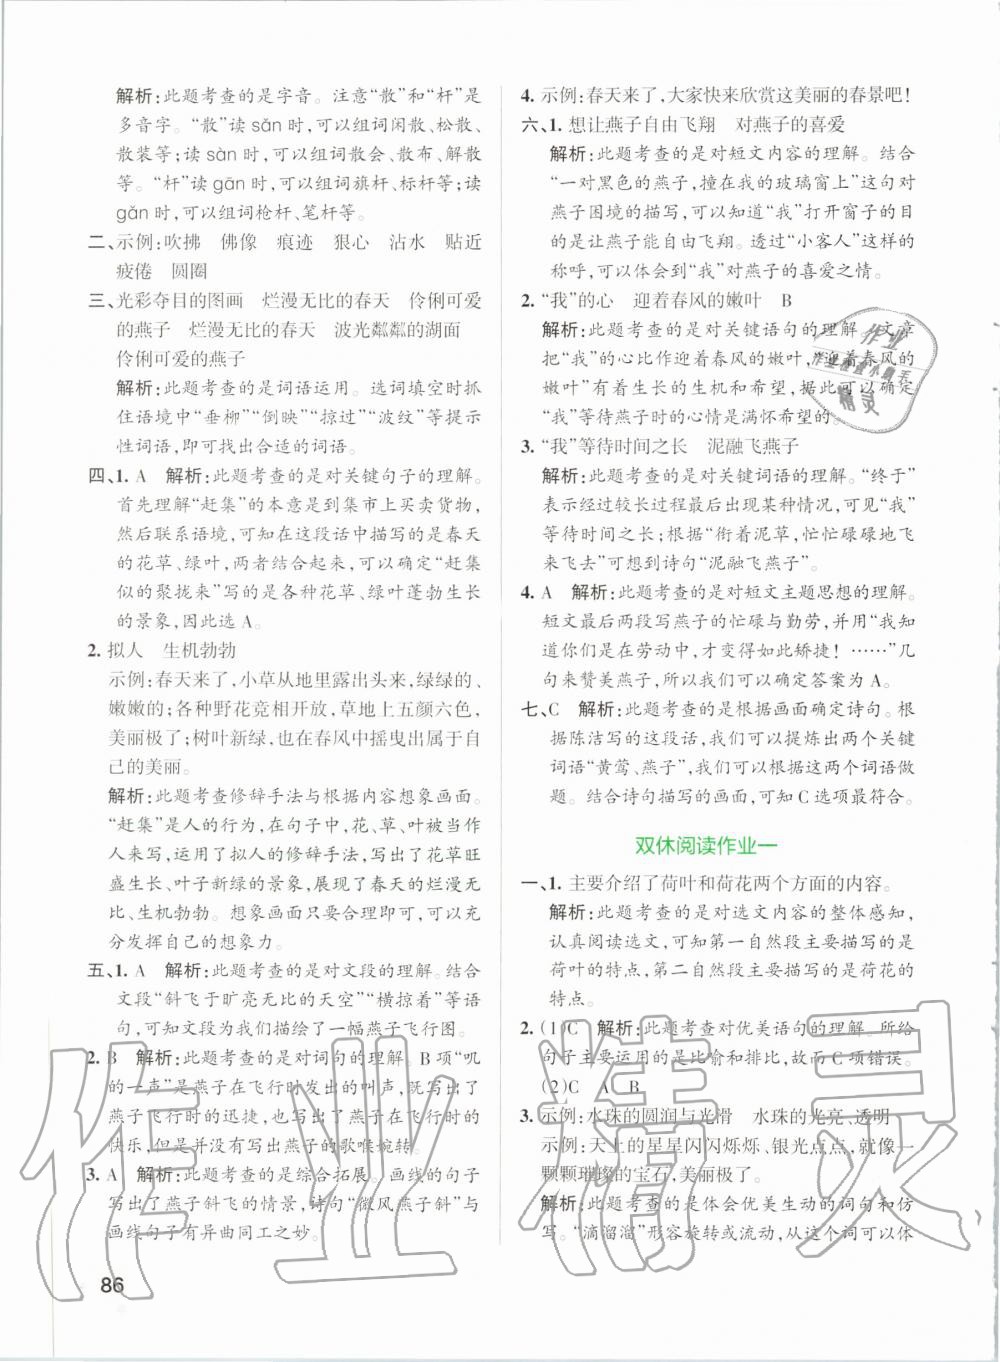 解析:此题考查的是字音。注意“散”和“杆”是
多音字。“散”读 sǎn 时,可以组词闲散、松散、
散装等;读 sàn 时,可以组词散会、散布、解散
等。“杆”读 gān 时,可以组词旗杆、标杆等;读
gǎn 时,可以组词枪杆、笔杆等。
二、示例:吹拂 佛像 痕迹 狠心 沾水 贴近
疲倦 圆圈
三、光彩夺目的图画 烂漫无比的春天 伶俐可爱
的燕子 烂漫无比的春天 波光粼粼的湖面
伶俐可爱的燕子
解析:此题考查的是词语运用。选词填空时抓
住语境中“垂柳”“倒映”“掠过”“波纹”等提示
性词语,即可找出合适的词语。
四、1. A 解析:此题考查的是对关键句子的理解。
首先理解“赶集”的本意是到集市上买卖货物,
然后联系语境,可知在这段话中描写的是春天
的花草、绿叶,两者结合起来,可以确定“赶集
似的聚拢来”写的是各种花草、绿叶蓬勃生长
的景象,因此选 A。
2. 拟人 生机勃勃
示例:春天来了,小草从地里露出头来,绿绿的、
嫩嫩的;各种野花竞相开放,草地上五颜六色,
美丽极了;树叶新绿,也在春风中摇曳出属于自
己的美丽。
解析:此题考查修辞手法与根据内容想象画面。
“赶集”是人的行为,在句子中,花、草、叶被当作
人来写,运用了拟人的修辞手法,写出了花草旺
盛生长、叶子新绿的景象,展现了春天的烂漫无
比、生机勃勃。想象画面只要合理即可,可以充
分发挥自己的想象力。
五、1. A 解析:此题考查的是对文段的理解。结合
文段“斜飞于旷亮无比的天空”“横掠着”等语
句,可知文段为我们描绘了一幅燕子飞行图。
2. B 解析:此题考查的是对词句的理解。B 项“叽
的一声”是燕子在飞行时发出的叫声,既写出了
燕子飞行时的迅捷,也写出了燕子在飞行时的
快乐,但是并没有写出燕子的歌喉婉转。
3. A 解析:此题考查的是综合拓展。画线的句子
写出了燕子斜飞的情景,诗句“微风燕子斜”与
画线句子有异曲同工之妙。
86
4. 示例:春天来了,大家快来欣赏这美丽的春景吧!
六、1. 想让燕子自由飞翔 对燕子的喜爱
解析:此题考查的是对短文内容的理解。结合
“一对黑色的燕子,撞在我的玻璃窗上”这句对
燕子困境的描写,可以知道“我”打开窗子的目
的是让燕子能自由飞翔。透过“小客人”这样的
称呼,可以体会到“我”对燕子的喜爱之情。
2. “我”的心 迎着春风的嫩叶 B
解析:此题考查的是对关键语句的理解。文章
把“我”的心比作迎着春风的嫩叶,“迎着春风的
嫩叶”有着生长的生机和希望,据此可以确定
“我”等待燕子时的心情是满怀希望的。
3. “我”等待时间之长 泥融飞燕子
解析:此题考查的是对关键词语的理解。“终于”
表示经过较长过程最后出现某种情况,可见“我”
等待时间之长;根据“衔着泥草,忙忙碌碌地飞
来飞去”可想到诗句“泥融飞燕子”。
4. A 解析:此题考查的是对短文主题思想的理解。
短文最后两段写燕子的忙碌与勤劳,并用“我知
道你们是在劳动中,才变得如此矫捷!……”几
句来赞美燕子,所以可以确定答案为 A。
七、C 解析:此题考查的是根据画面确定诗句。根
据陈洁写的这段话,我们可以提炼出两个关键
词语“黄莺、燕子”,我们可以根据这两个词语做
题。结合诗句描写的画面,可知 C 选项最符合。
双休阅读作业一
一、1. 主要介绍了荷叶和荷花两个方面的内容。
解析:此题考查的是对选文内容的整体感知,
认真阅读选文,可知第一自然段主要描写的是
荷叶的特点,第二自然段主要描写的是荷花的
特点。
2. (1)C 解析:此题考查对优美语句的理解。所给
句子主要运用的是比喻和排比,故而 C 项错误。
(2)C A B
3. 示例:水珠的圆润与光滑 水珠的光亮、透明
示例:天上的星星闪闪烁烁、银光点点,就像一
颗颗璀璨的宝石,美丽极了。
解析:此题考查的是体会优美生动的词句和仿
写。“滴溜溜”形容旋转或流动,从这个词可以体
作业
作业检查小精灵
精灵
作业精灵